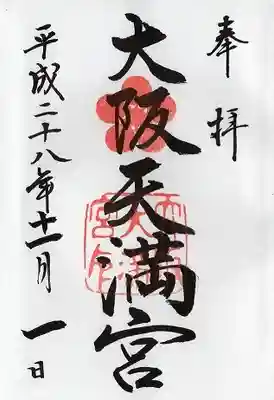 奉拝
大阪天満宮
平成二十八年十一月一日